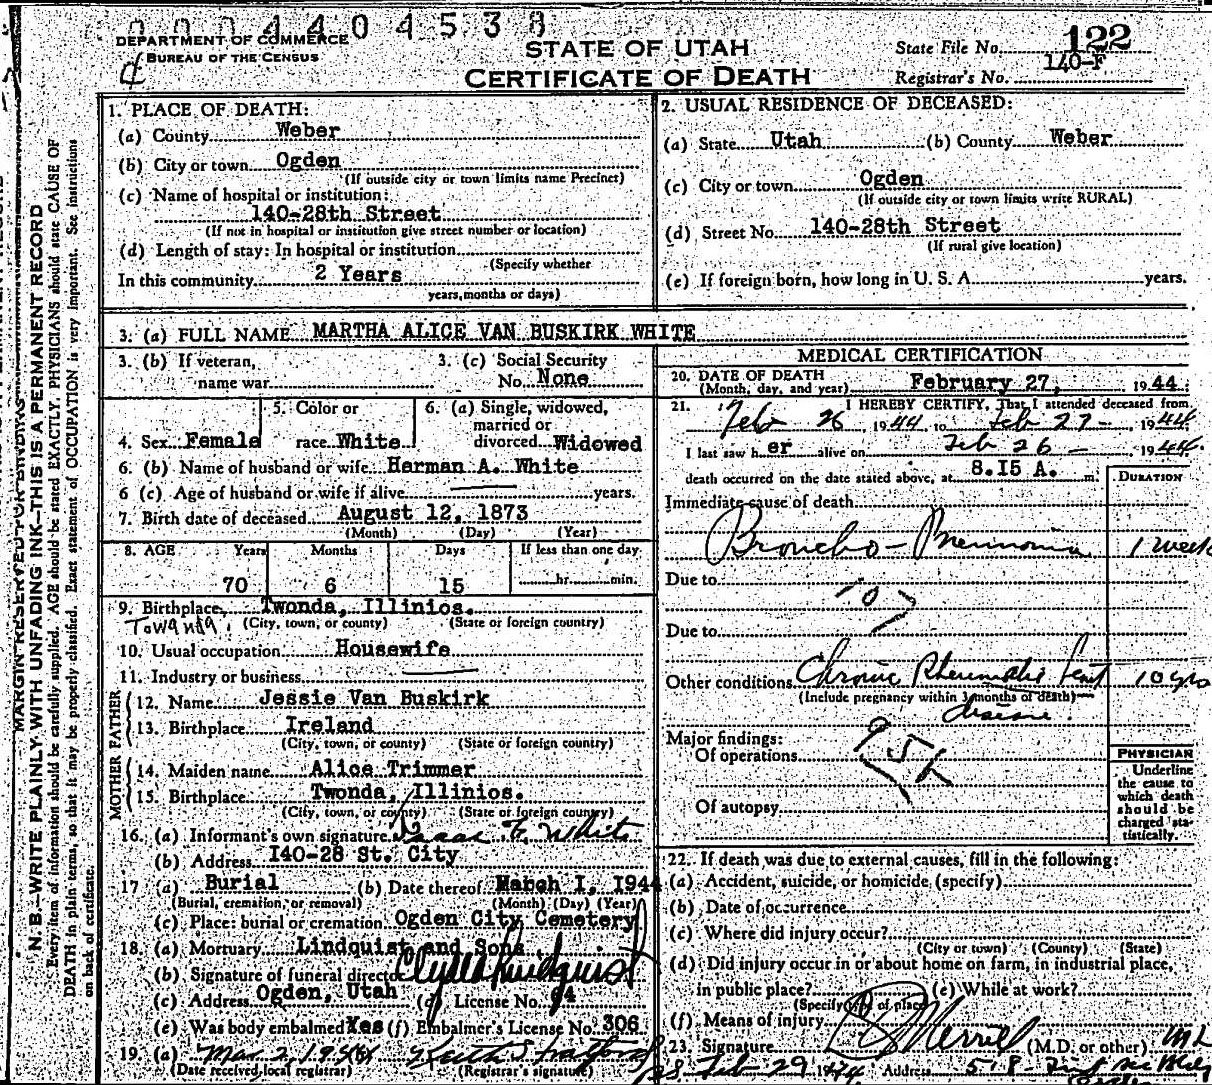 0004404538
DEPARTMENT OF COMMERCE
BUREAU OF THE CENSUS
STATE OF UTAH
CERTIFICATE OF DEATH
State File No. 122
140-F
Registrar's No.
MARGIN RESERVED FOR BINDING
N. B.—WRITE PLAINLY, WITH UNFADING INK—THIS IS A PERMANENT RECORD
Every item of information should be carefully supplied. AGE should be stated EXACTLY. PHYSICIANS should state CAUSE OF
DEATH in plain terms, so that it may be properly classified. Exact statement of OCCUPATION is very important. See instructions
on back of certificate.
1. PLACE OF DEATH:
(a) County Weber
(b) City or town Ogden
(If outside city or town limits name Precinct)
(c) Name of hospital or institution:
140-28th Street
(If not in hospital or institution give street number or location)
(d) Length of stay: In hospital or institution
(Specify whether
In this community 2 Years
years, months or days)
2. USUAL RESIDENCE OF DECEASED:
(a) State Utah (b) County Weber
(c) City or town Ogden
(If outside city or town limits write RURAL)
(d) Street No. 140-28th Street
(If rural give location)
(e) If foreign born, how long in U. S. A. years.
3. (a) FULL NAME MARTHA ALICE VAN BUSKIRK WHITE
3. (b) If veteran,
name war
3. (c) Social Security
No. None
4. Sex Female
5. Color or
race White
6. (a) Single, widowed,
married or
divorced Widowed
6. (b) Name of husband or wife Harman A. White
6 (c) Age of husband or wife if alive years.
7. Birth date of deceased August 12, 1873
(Month) (Day) (Year)
8. AGE Years Months Days If less than one day
70 6 15 hr. min.
9. Birthplace Twonda, Illinios.
Towanda. (City, town, or county) (State or foreign country)
10. Usual occupation Housewife
11. Industry or business
FATHER
12. Name Jessie Van Buskirk
13. Birthplace Ireland
(City, town, or county) (State or foreign country)
MOTHER
14. Maiden name Alice Trimmer
15. Birthplace Twonda, Illinios.
(City, town, or county) (State or foreign country)
16. (a) Informant's own signature Isaac F. White
(b) Address 140-28 St. City
17 (a) Burial (b) Date thereof March 1, 1944
(Burial, cremation, or removal) (Month) (Day) (Year)
(c) Place: burial or cremation Ogden City Cemetery
18. (a) Mortuary Lindquist and Sons
(b) Signature of funeral director Clyde Lindquist
(c) Address Ogden, Utah (d) License No. 94
(e) Was body embalmed Yes (f) Embalmer's License No. 306
19. (a) Mar 2, 1944
(Date received local registrar) (Registrar's signature)
MEDICAL CERTIFICATION
20. DATE OF DEATH
(Month, day, and year) February 27, 1944
21. I HEREBY CERTIFY, That I attended deceased from
Feb 26, 1944, to Feb 27 - , 1944.
I last saw her alive on Feb 26 - 1944.
death occurred on the date stated above, at 8.15 A. m.
DURATION
Immediate cause of death
Broncho-Pneumonia 1 week
Due to 107
Due to
Other conditions Chronic Rheumatic heart 10 yrs
(Include pregnancy within 3 months of death)
disease.
Major findings: 95b
Of operations
Of autopsy
PHYSICIAN
Underline
the cause to
which death
should be
charged sta-
tistically.
22. If death was due to external causes, fill in the following:
(a) Accident, suicide, or homicide (specify)
(b) Date of occurrence
(c) Where did injury occur?
(City or town) (County) (State)
(d) Did injury occur in or about home on farm, in industrial place,
in public place? (e) While at work?
(Specify type of place)
(f) Means of injury
23 Signature Merrill (M.D. or other) M D
Feb 29 1944 Address